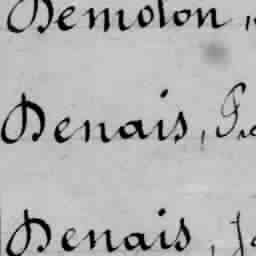 Demolon,
Denais,
Denais,